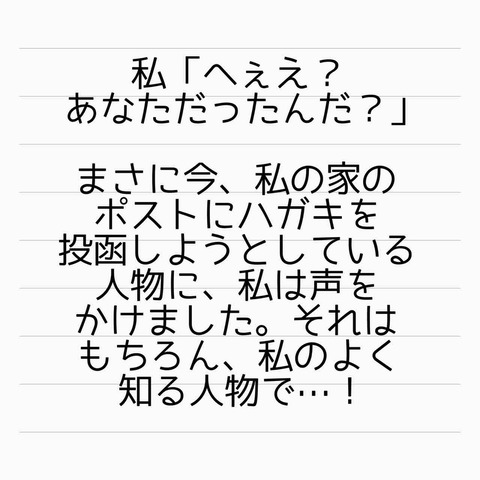 私「へぇえ？
あなただったんだ？」
まさに今、私の家の
ポストにハガキを
投函しようとしている
人物に、私は声を
かけました。それは
もちろん、私のよく
知る人物で…！